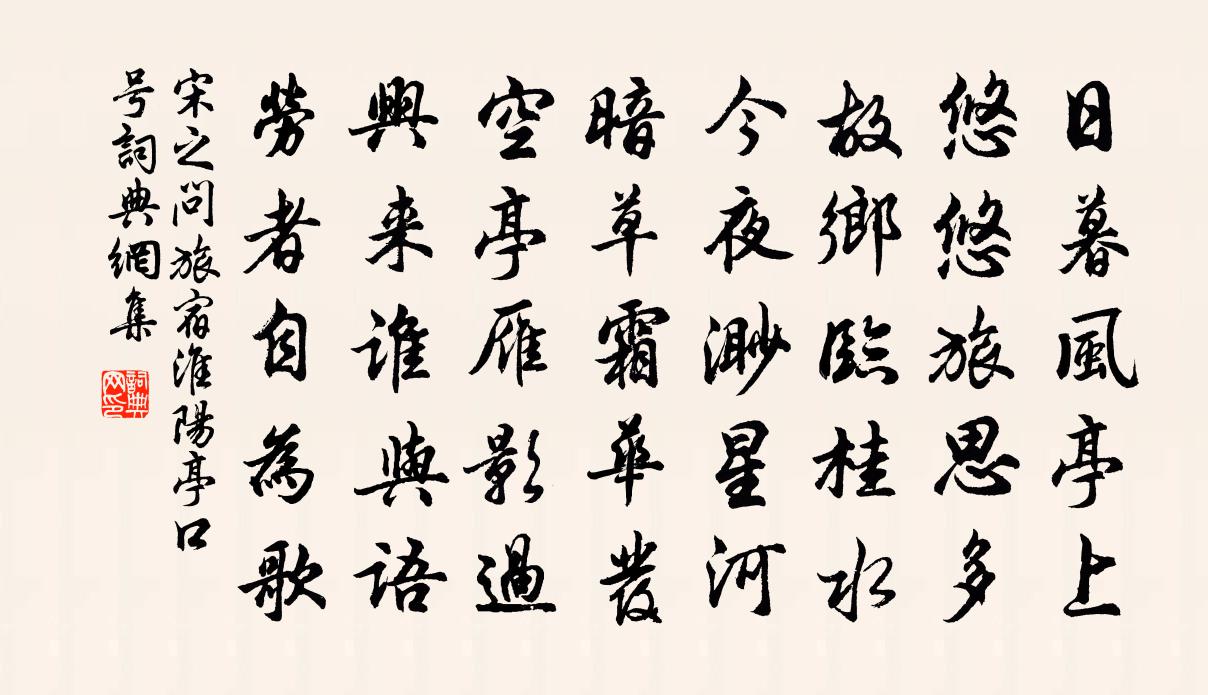 日暮風亭上
悠悠旅思多
故鄉臨桂水
今夜渺星河
暗草霜華發
空亭雁影過
興来誰與語
勞者自為歌
宋之问旅宿淮陽亭口
号詞典網集
詞典
网印